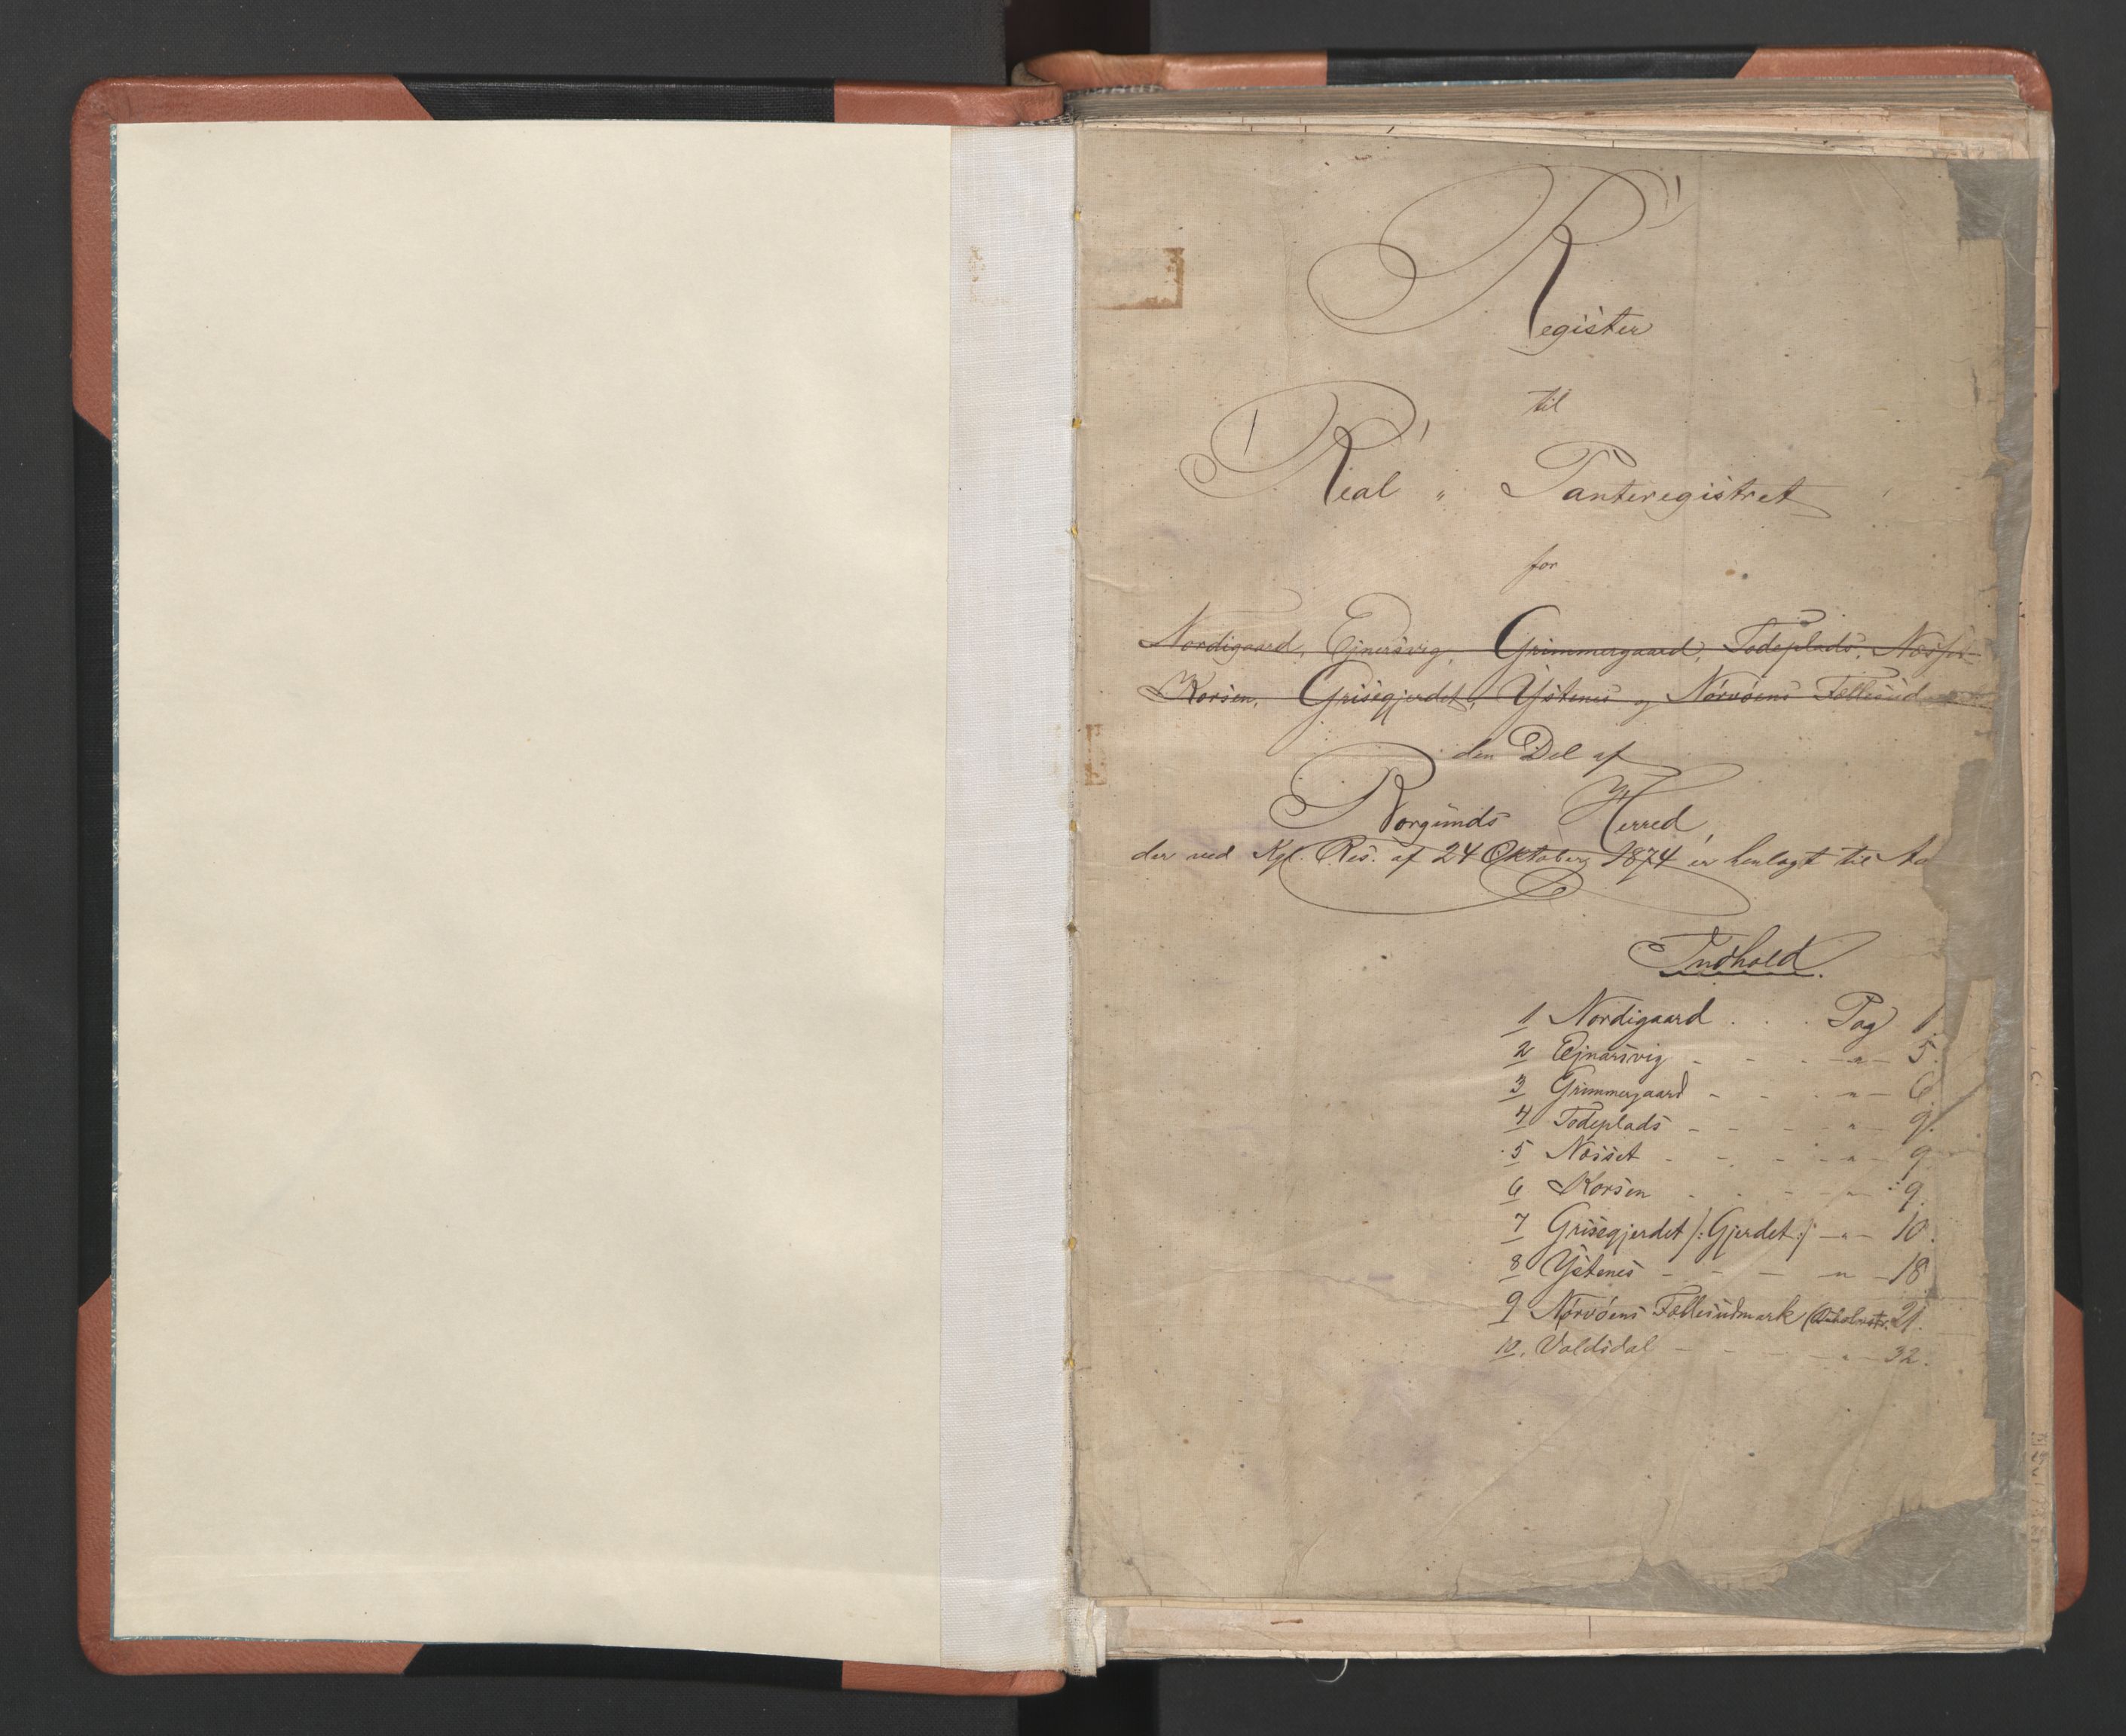 Register
til
Real " Panteregistret
for
Nordigaard, Ejnersvig, Grimmergaard, Todeplads, Næsset
Korsen, Grisegjerdet, Ystenes og Nørvøens Fællesud
den Del af
Borgunds Herred,
der ved Kgl. Res. af 24 Oktober 1874 er henlagt til Aa
Indhold.
1 Nordigaard . . . Pag 1.
2 Ejnarsvig - - - -"- 5.
3 Grimmergaard - - . -"- 6.
4 Todeplads - - - - " - 9.
5 Næsset - - - -"- 9
6 Korsen - - - -"- 9.
7 Grisegjerdet /: Gjerdet :/ -"- 10.
8 Ystenes - - - -"- 18
9 Nørvøens Fællesudmark 21.
10. Valdsdal - - - -"- 32.